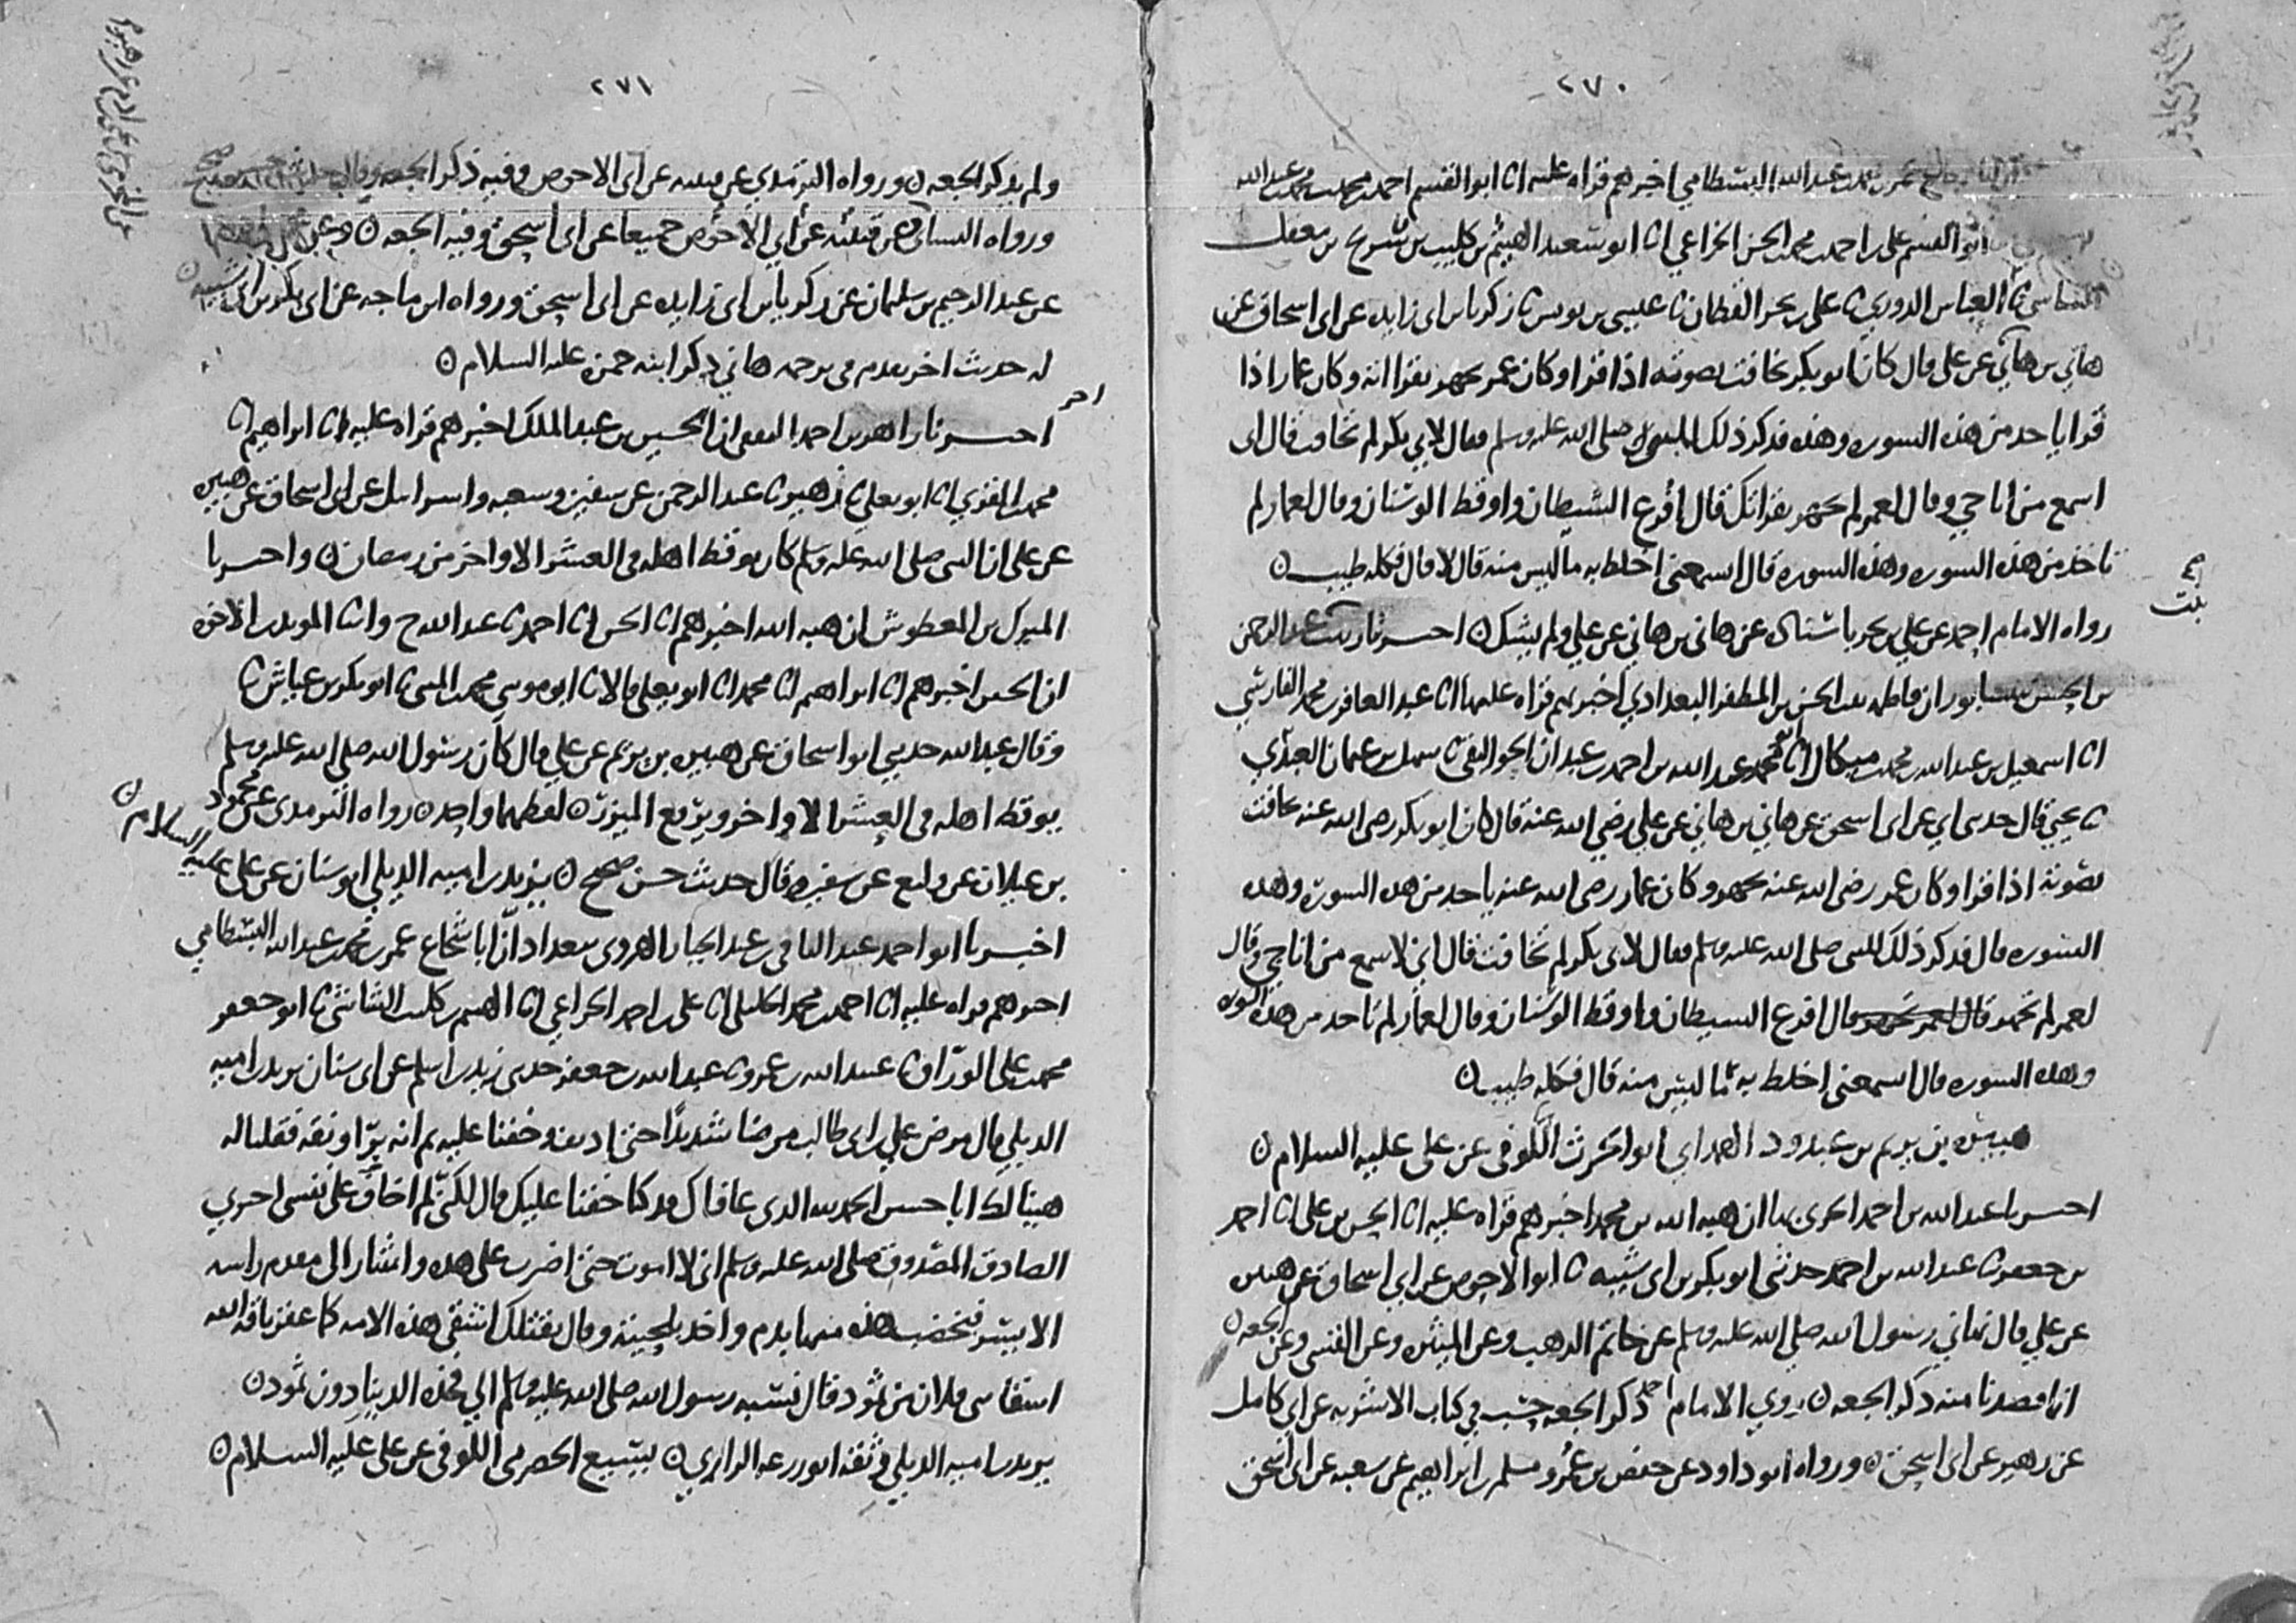 ٢٧٠
عمر بن محمد بن عبد الله البسطامي اخبرهم قراه عليه انا ابو القسم احمد بن محمد بن محمد بن عبد الله
ابو القسم علي بن احمد بن محمد بن الحسن الخزاعي انا ابو سعيد الهيثم بن كليب بن شريح بن معقل
الشاسي نا العباس الدوري نا علي بن بحر القطان نا عيسى بن يونس نا زكريا بن ابي زايده عن ابي اسحاق عن
هاني بن هاني عن علي قال كان ابو بكر يخافت بصوته اذا قرا وكان عمر يجهر بقراته وكان عمار اذا
قرا ياخذ من هذه السوره وهذه فذكر ذلك للنبي صلى الله عليه وسلم فقال لابي بكر لم تخافت قال اني
اسمع من اناجي وقال لعمر لم تجهر بقراتك قال افزع الشيطان واوقظ الوسنان وقال لعمار لم
تاخذ من هذه السوره وهذه السوره قال اتسمعني اخلط به ما ليس منه قال لا قال فكله طيب
رواه الامام احمد عن علي بن بحر باسناده عن هاني بن هاني عن علي ولم يشك اخبرنا زينب بنت عبد الرحمن
بن الحسن بنيسابور ان فاطمه بنت الحسن بن المظفر البغدادي اخبرتهم قراه عليها انا عبد الغافر بن محمد الفارسي
انا اسمعيل بن عبد الله بن محمد بن ميكال انا ابو محمد عبد الله بن احمد بن عبدان الجواليقي نا سهل بن عثمان العبدي
نا يحيى قال حدثني ابي عن ابي اسحق عن هاني بن هاني عن علي رضي الله عنه قال كان ابو بكر رضي الله عنه يخافت
بصوته اذا قرا وكان عمر رضي الله عنه يجهر وكان عمار رضي الله عنه ياخذ من هذه السورة وهذه
السوره قال فذكر ذلك للنبي صلى الله عليه وسلم فقال لابي بكر لم تخافت قال اني لاسمع من اناجي وقال
لعمر لم تجهر قال افزع الشيطان واوقظ الوسنان وقال لعمار لم تاخذ من هذه السوره
وهذه السوره قال اتسمعني اخلط به ما ليس منه قال فكله طيب
هبيره بن يريم بن عبدود الهمداني ابو الحرث الكوفي عن علي عليه السلام
اخبرنا عبد الله بن احمد الحربي بها ان هبه الله بن محمد اخبرهم قراه عليه انا الحسن بن علي انا احمد
بن جعفر نا عبد الله بن احمد حدثني ابو بكر بن ابي شيبه نا ابو الاحوص عن ابي اسحاق عن هبيره
عن علي قال نهاني رسول الله صلى الله عليه وسلم عن خاتم الذهب وعن الميثره وعن القسي وعن الجعه
انما قصدنا منه ذكر الجعه روى الامام احمد ذكر الجعه حسب في كتاب الاشربه عن ابي كامل
عن زهير عن ابي اسحق ورواه ابو داود عن حفص بن عمر ومسلم بن ابراهيم عن شعبه عن ابي اسحق
٢٧١
ولم يذكر الجعه ورواه الترمذي عن قتيبه عن ابي الاحوص وفيه ذكر الجعه وقال حديث حسن صحيح
ورواه النسائي عن قتيبه عن ابي الاحوص جميعا عن ابي اسحق وفيه الجعه
عن عبد الرحيم بن سليمان عن زكريا بن ابي زايده عن ابي اسحق ورواه ابن ماجه عن ابي بكر بن ابي شيبه
له حديث اخر تقدم في ترجمه هاني ذكر ابنه حمزه عليه السلام
اخر
اخبرنا زاهر بن احمد الثقفي ان الحسين بن عبد الملك اخبرهم قراه عليه انا ابراهيم انا
محمد بن المقري انا ابو يعلى نا زهير نا عبد الرحمن عن سفين وشعبه واسرايل عن ابي اسحاق عن هبيره
عن علي ان النبي صلى الله عليه وسلم كان يوقظ اهله في العشر الاواخر من رمضان واخبرنا
المبرك بن المعطوش ان هبه الله اخبرهم انا الحسن انا احمد نا عبد الله ح وانا المويد بن الاخوه
ان الحسين اخبرهم انا ابراهيم انا محمد انا ابو يعلى قالا نا ابو موسى محمد بن المثنى نا ابو بكر بن عياش نا
وقال عبد الله حدثني ابو اسحاق عن هبيره بن يريم عن علي قال كان رسول الله صلى الله عليه وسلم
يوقظ اهله في العشر الاواخر ويرفع الميزر لفظهما واحد رواه الترمذي عن محمود
بن غيلان عن وكيع عن سفين وقال حديث حسن صحيح يزيد بن اميه الديلي ابو سنان عن علي عليه السلام
اخبرنا ابو احمد عبد الباقي بن عبد الجبار الهروي ببغداد ان ابا شجاع عمر بن محمد بن عبد الله البسطامي
اخبرهم قراه عليه انا احمد بن محمد الخليلي انا علي بن احمد الخزاعي انا الهيثم بن كليب الشاشي نا ابو جعفر
محمد بن علي الوراق نا عبيد الله بن عمرو نا عبد الله بن جعفر حدثني زيد بن اسلم عن ابي سنان يزيد بن اميه
الديلي قال مرض علي بن ابي طالب مرضا شديدا حتى ادنف وخفنا عليه ثم انه برا ونقه فقلنا له
هنيا لك ابا حسن الحمد لله الذي عافاك قد كنا خفنا عليك قال لكني لم اخاف على نفسي اخبرني
الصادق المصدوق صلى الله عليه وسلم اني لا اموت حتى اضرب على هذه واشار الى مقدم راسه
الايسر فتخضب هذه منها بدم واخذ بلحيته وقال يقتلك اشقى هذه الامه كما عقر ناقه الله
اشقا بني فلان من ثمود قال نسبه رسول الله صلى الله عليه وسلم الى فخذه الدنيا دون ثمود
يزيد بن اميه الديلي وثقه ابو زرعه الرازي يسيع الحضرمي الكوفي عن علي عليه السلام